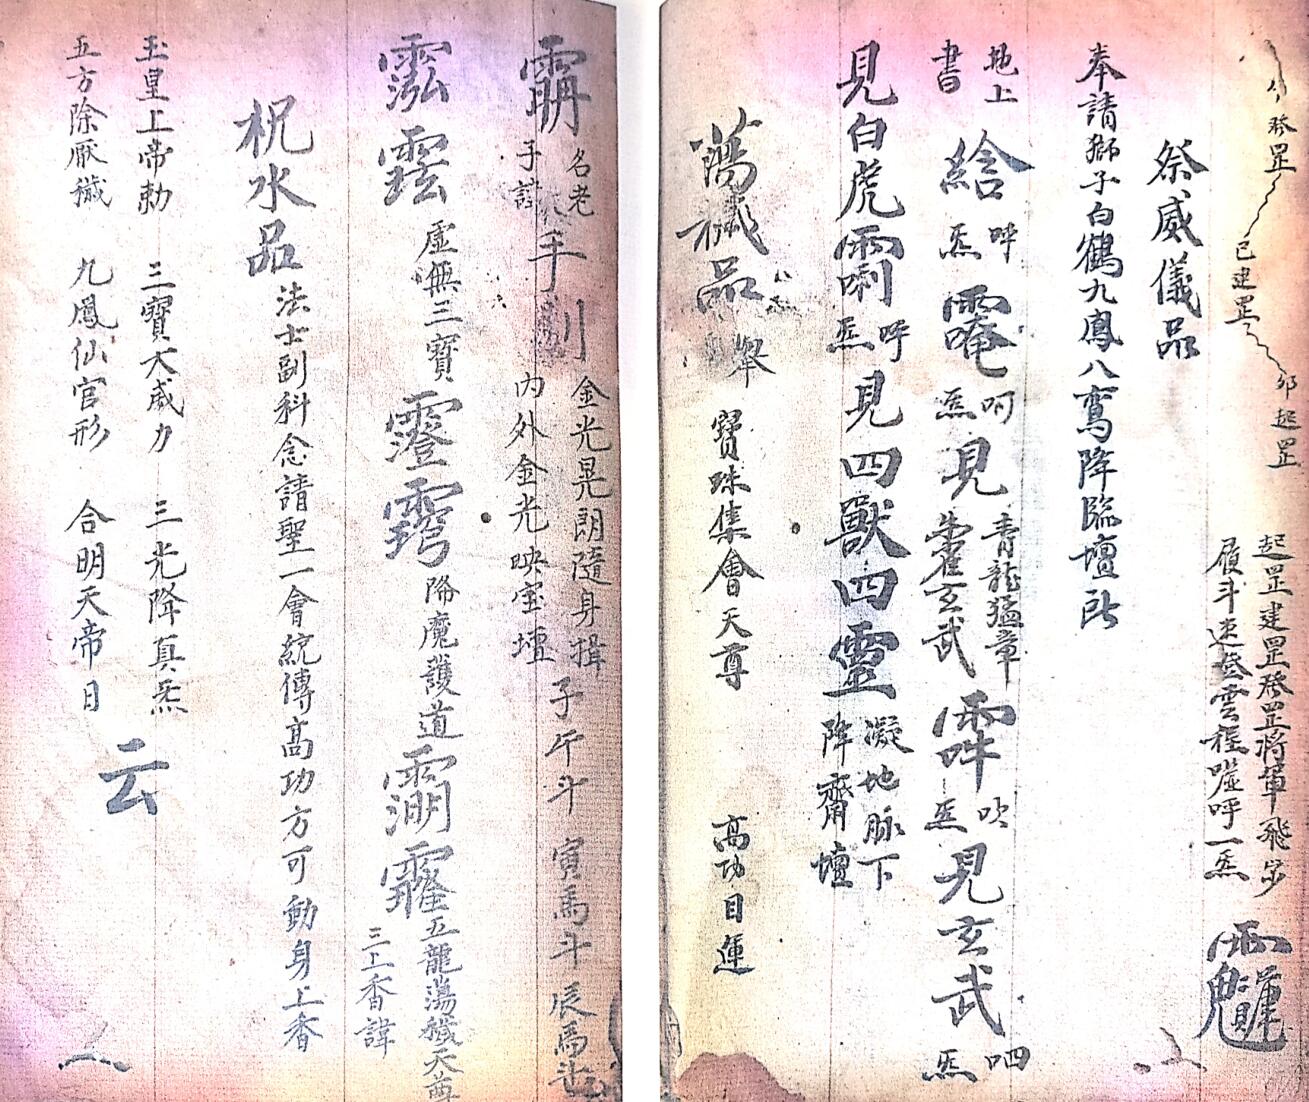 發罡
已建罡
卯起罡
起罡建罡發罡將軍飛步
履斗速登雲程噓呼一炁
祭威儀品
奉請獅子白鶴九鳳八鸞降臨壇所
地上
書
呼
炁
呵
炁
見
青龍猛章
玄武
吹
炁
見玄武
呬
炁
見白虎
呼
炁
見四獸四靈
凝地脉下
降齋壇
蕩穢品
舉
寶珠集會天尊
高功目運
名老
子諱
手
金光晃朗隨身揖
内外金光映宝壇
子午斗
寅馬斗
辰馬
虛無三寳
降魔護道
五龍蕩穢天尊
三上香諱
祝水品
法士副科念請聖一會統傳高功方可動身上香
玉皇上帝勅 三寳大威力 三光降真炁
五方除厭穢 九鳳仙官形 合明天帝日
云